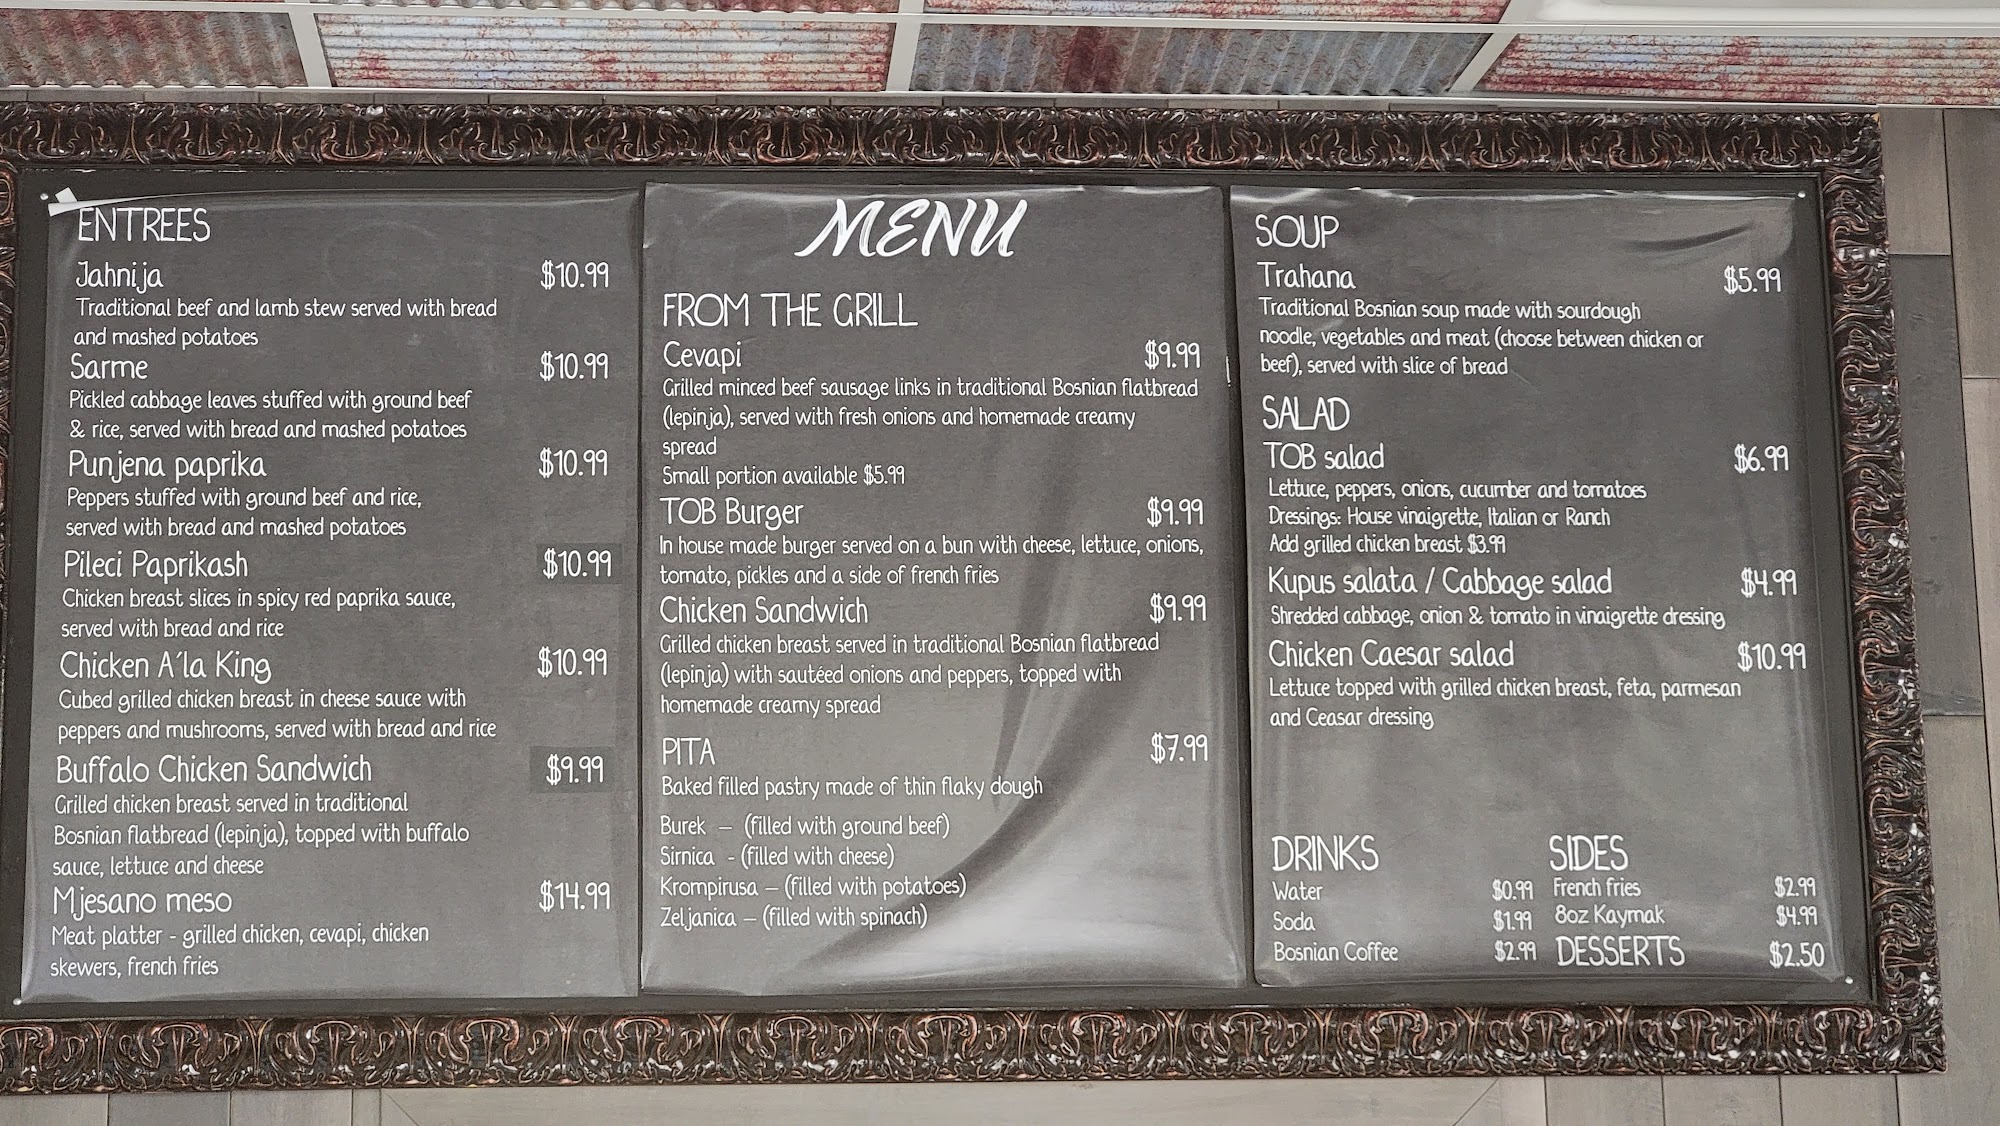 ENTREES
Jahnija $10.99
Traditional beef and lamb stew served with bread
and mashed potatoes
Sarme $10.99
Pickled cabbage leaves stuffed with ground beef
& rice, served with bread and mashed potatoes
Punjena paprika $10.99
Peppers stuffed with ground beef and rice,
served with bread and mashed potatoes
Pileci Paprikash $10.99
Chicken breast slices in spicy red paprika sauce,
served with bread and rice
Chicken A'la King $10.99
Cubed grilled chicken breast in cheese sauce with
peppers and mushrooms, served with bread and rice
Buffalo Chicken Sandwich $9.99
Grilled chicken breast served in traditional
Bosnian flatbread (lepinja), topped with buffalo
sauce, lettuce and cheese
Mjesano meso $14.99
Meat platter - grilled chicken, cevapi, chicken
skewers, french fries
MENU
FROM THE GRILL
Cevapi $9.99
Grilled minced beef sausage links in traditional Bosnian flatbread
(lepinja), served with fresh onions and homemade creamy
spread
Small portion available $5.99
TOB Burger $9.99
In house made burger served on a bun with cheese, lettuce, onions,
tomato, pickles and a side of french fries
Chicken Sandwich $9.99
Grilled chicken breast served in traditional Bosnian flatbread
(lepinja) with sautéed onions and peppers, topped with
homemade creamy spread
PITA $7.99
Baked filled pastry made of thin flaky dough
Burek – (filled with ground beef)
Sirnica - (filled with cheese)
Krompirusa – (filled with potatoes)
Zeljanica – (filled with spinach)
SOUP
Trahana $5.99
Traditional Bosnian soup made with sourdough
noodle, vegetables and meat (choose between chicken or
beef), served with slice of bread
SALAD
TOB salad $6.99
Lettuce, peppers, onions, cucumber and tomatoes
Dressings: House vinaigrette, Italian or Ranch
Add grilled chicken breast $3.99
Kupus salata / Cabbage salad $4.99
Shredded cabbage, onion & tomato in vinaigrette dressing
Chicken Caesar salad $10.99
Lettuce topped with grilled chicken breast, feta, parmesan
and Ceasar dressing
DRINKS
Water $0.99
Soda $1.99
Bosnian Coffee $2.99
SIDES
French fries $2.99
8oz Kaymak $4.99
DESSERTS $2.50